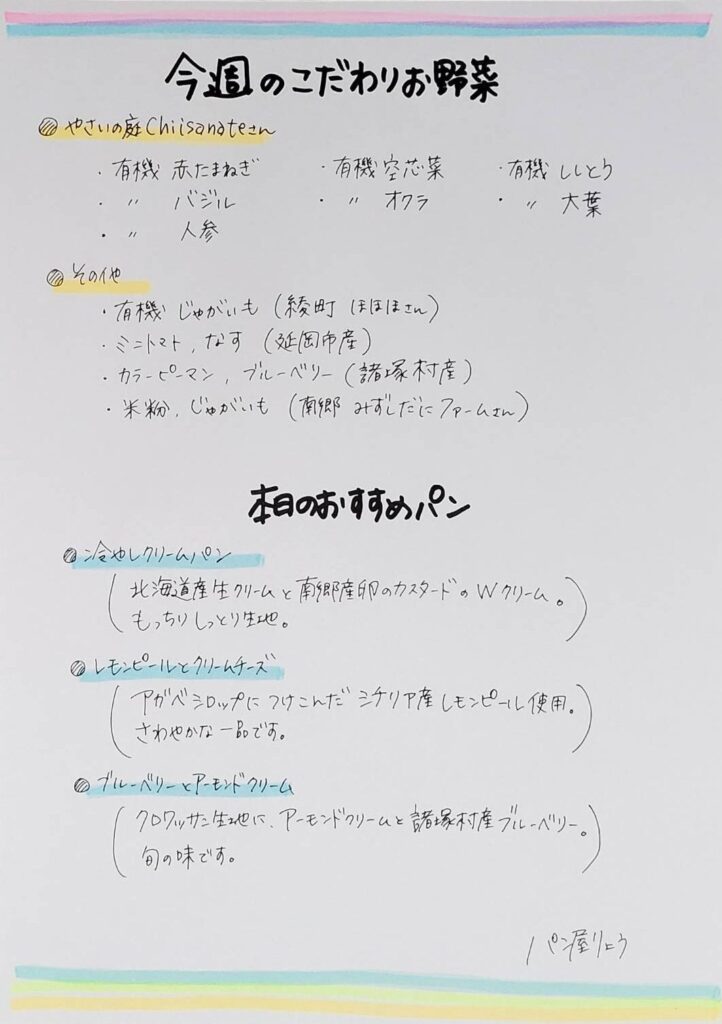 今週のこだわりお野菜
やさいの庭Chiisanateさん
・有機 赤たまねぎ ・有機 空芯菜 ・有機 ししとう
・ 〃 バジル ・ 〃 オクラ ・ 〃 大葉
・ 〃 人参
その他
・有機 じゃがいも (綾町 ほほほさん)
・ミニトマト, なす (延岡市産)
・カラーピーマン, ブルーベリー (諸塚村産)
・米粉, じゃがいも (南郷 みずしだにファームさん)
本日のおすすめパン
冷やしクリームパン
(北海道産生クリームと南郷産卵のカスタードのWクリーム。
もっちりしっとり生地。)
レモンピールとクリームチーズ
(アガベシロップにつけこんだシチリア産レモンピール使用。
さわやかな一品です。)
ブルーベリーとアーモンドクリーム
(クロワッサン生地に、アーモンドクリームと諸塚村産ブルーベリー。
旬の味です。)
パン屋りょう